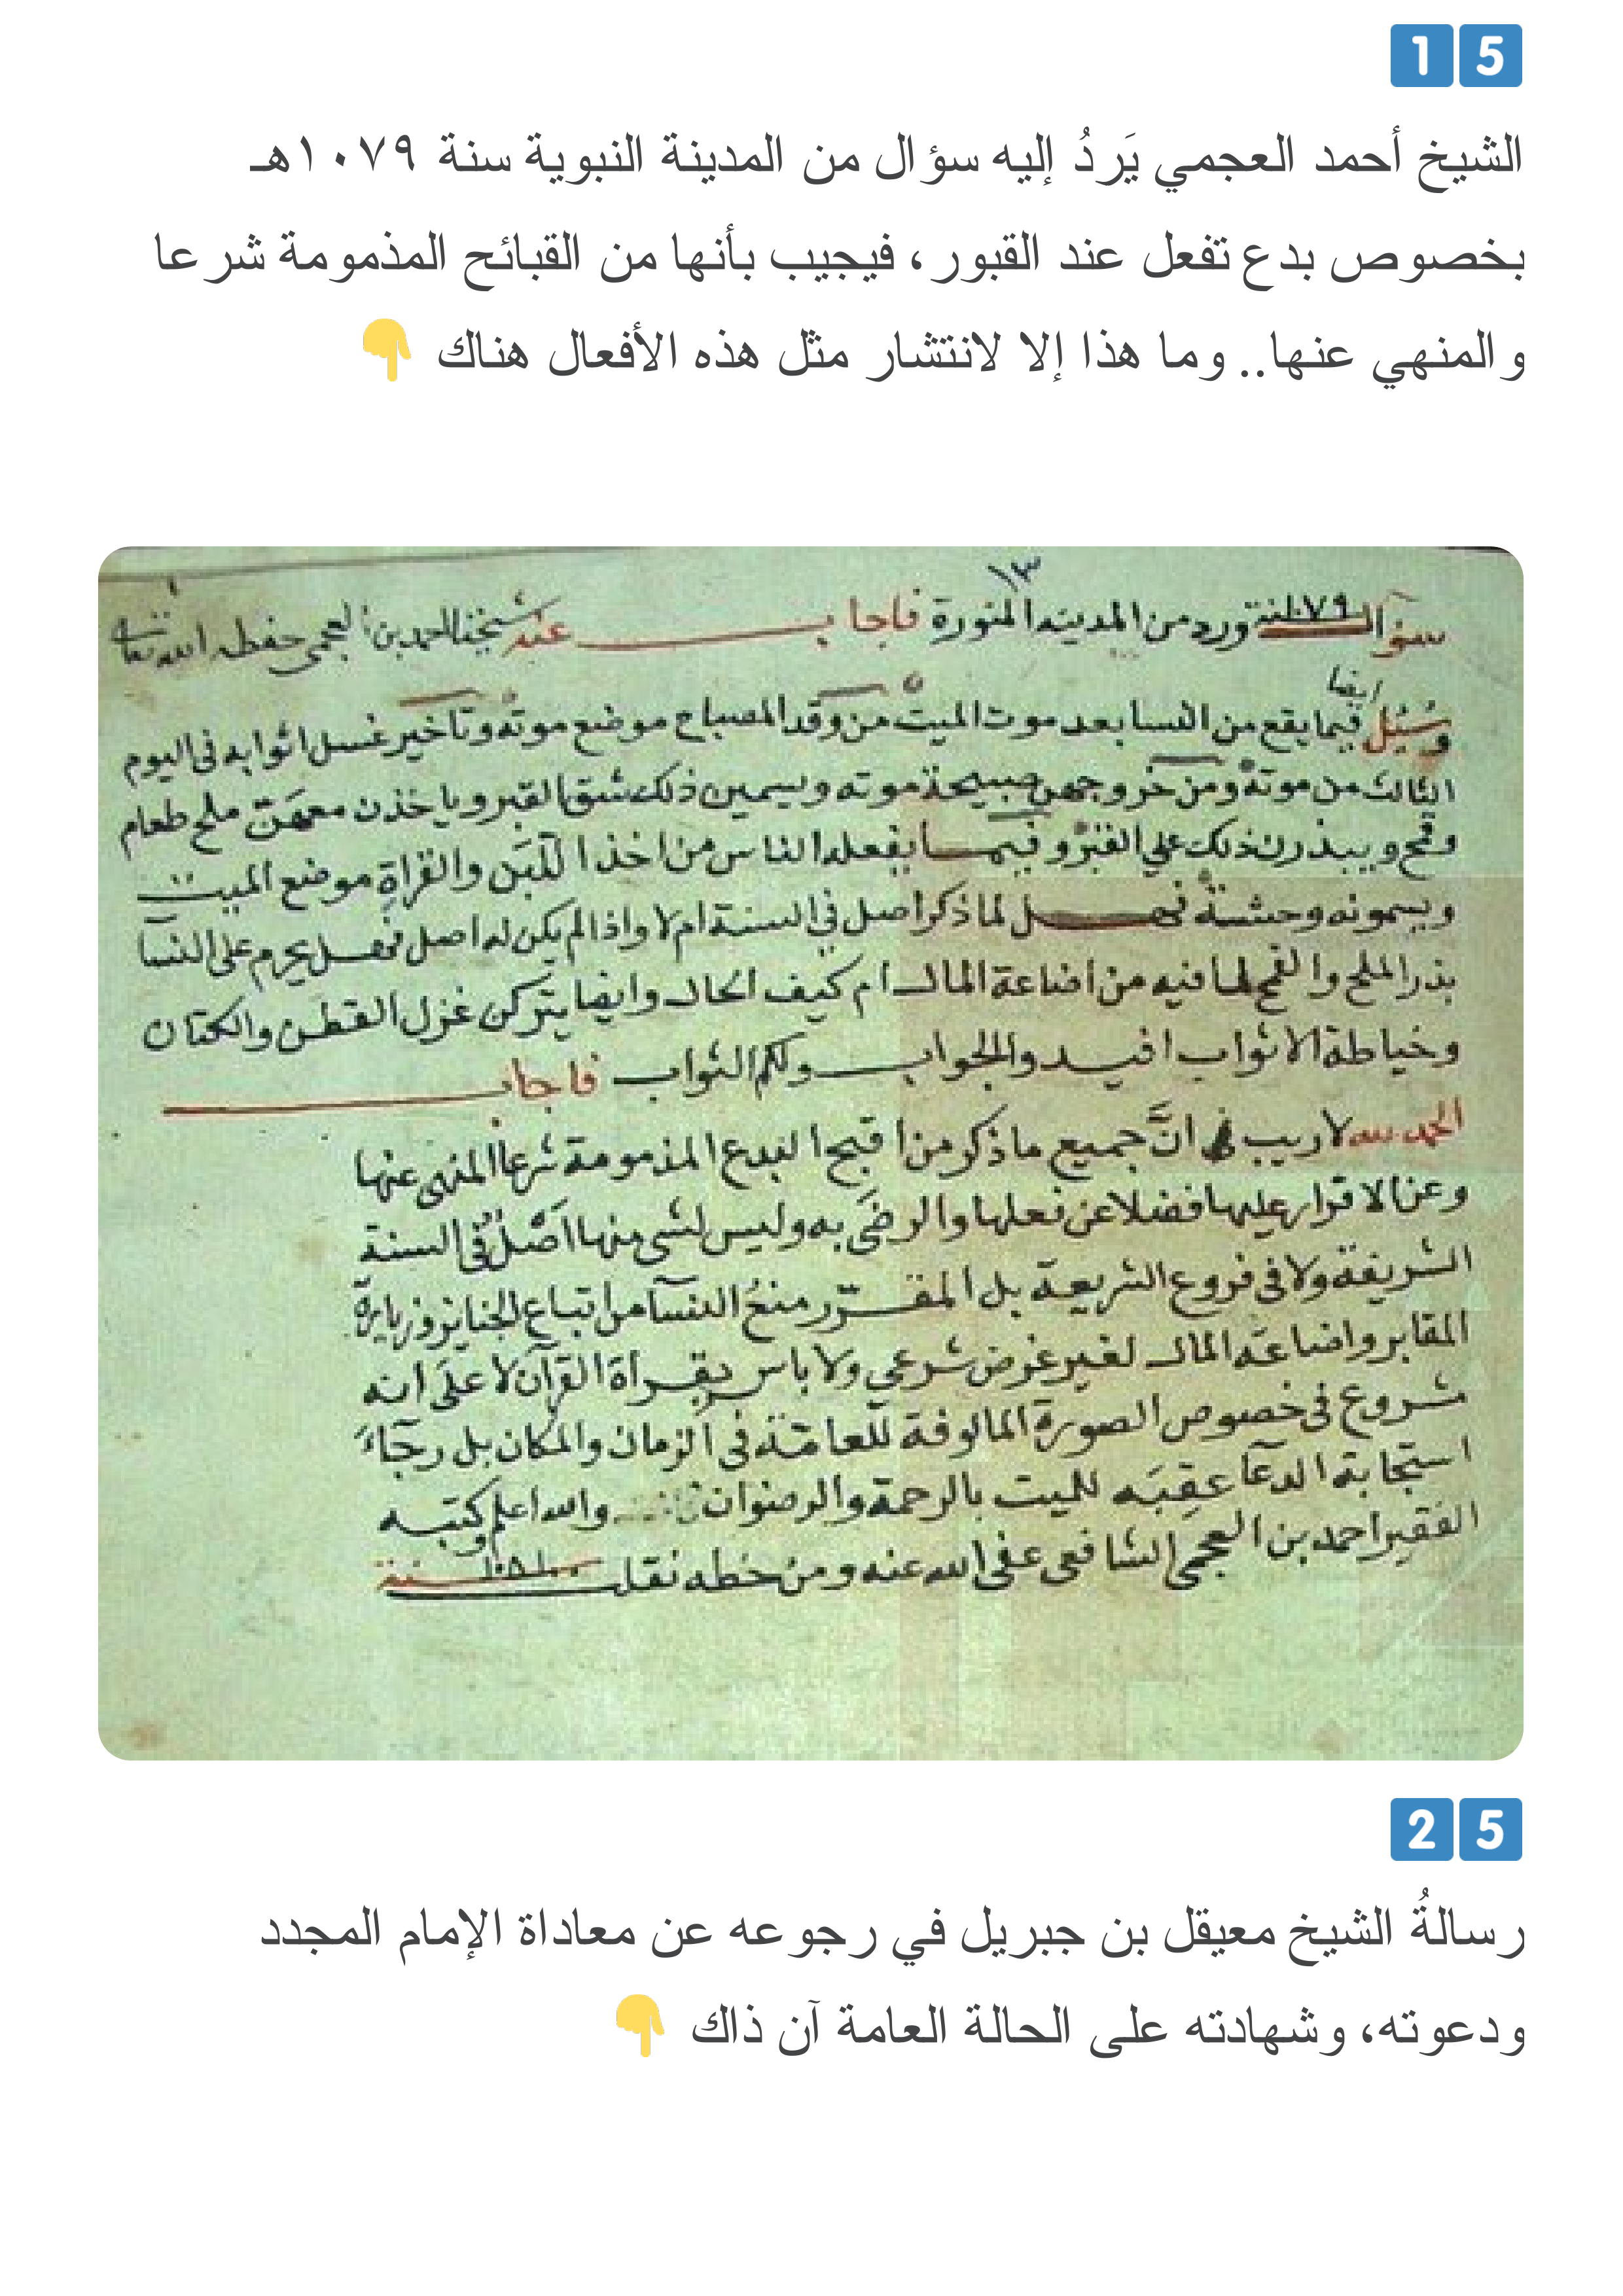 15
الشيخ أحمد العجمي يَردُ إليه سؤال من المدينة النبوية سنة ١٠٧٩هـ
بخصوص بدع تفعل عند القبور، فيجيب بأنها من القبائح المذمومة شرعا
والمنهي عنها.. وما هذا إلا لانتشار مثل هذه الأفعال هناك 👇
١٣
سؤال سنة ١٠٧٩ ورد من المدينه المنورة فاجاب عنه شيخنا احمد بن العجمي حفظه الله تعالى
ايضا
وسُئل فيما يقع من النسا بعد موت الميت من وقد المصباح موضع موته وتاخير غسل اثوابه في اليوم
الثالث من موته ومن خروجهن صبيحة موته ويسمين ذلك شق القبر وياخذن معهن ملح طعام
وقمح ويبذرن ذلك علي القبر وفيما يفعله الناس من اخذ اللبن والقراة موضع الميت
ويسمونه وحشة فهل لما ذكر اصل في السنة ام لا واذا لم يكن له اصل فهل يحرم على النسا
بذر الملح والقمح لما فيه من اضاعة المال ام كيف الحال وايضا يتركن غزل القطن والكتان
وخياطة الاثواب افيدوا الجواب ولكم الثواب فاجاب
الحمد لله لا ريب انَّ جميع ما ذكر من اقبح البدع المذمومة شرعا المنهي عنها
وعن الاقرار عليها فضلا عن فعلها والرضى به وليس لشي منها اصْلٌ في السنة
الشريفة ولا في فروع الشريعة بل المقرّر منعُ النسآ من اتباع الجنايز وزيارة
المقابر واضاعة المال لغير غرض شرعي ولا باس بقراة القرآن لا على انه
مشروع في خصوص الصورة المالوفة للعامة في الزمان والمكان بل رجآء
استجابة الدعآ عقبه للميت بالرحمة والرضوان والله اعلم وكتبه
الفقير احمد بن العجمي الشافعي عفى الله عنه ومن خطه نقل سنة
25
رسالةُ الشيخ معيقل بن جبريل في رجوعه عن معاداة الإمام المجدد
ودعوته، وشهادته على الحالة العامة آن ذاك 👇